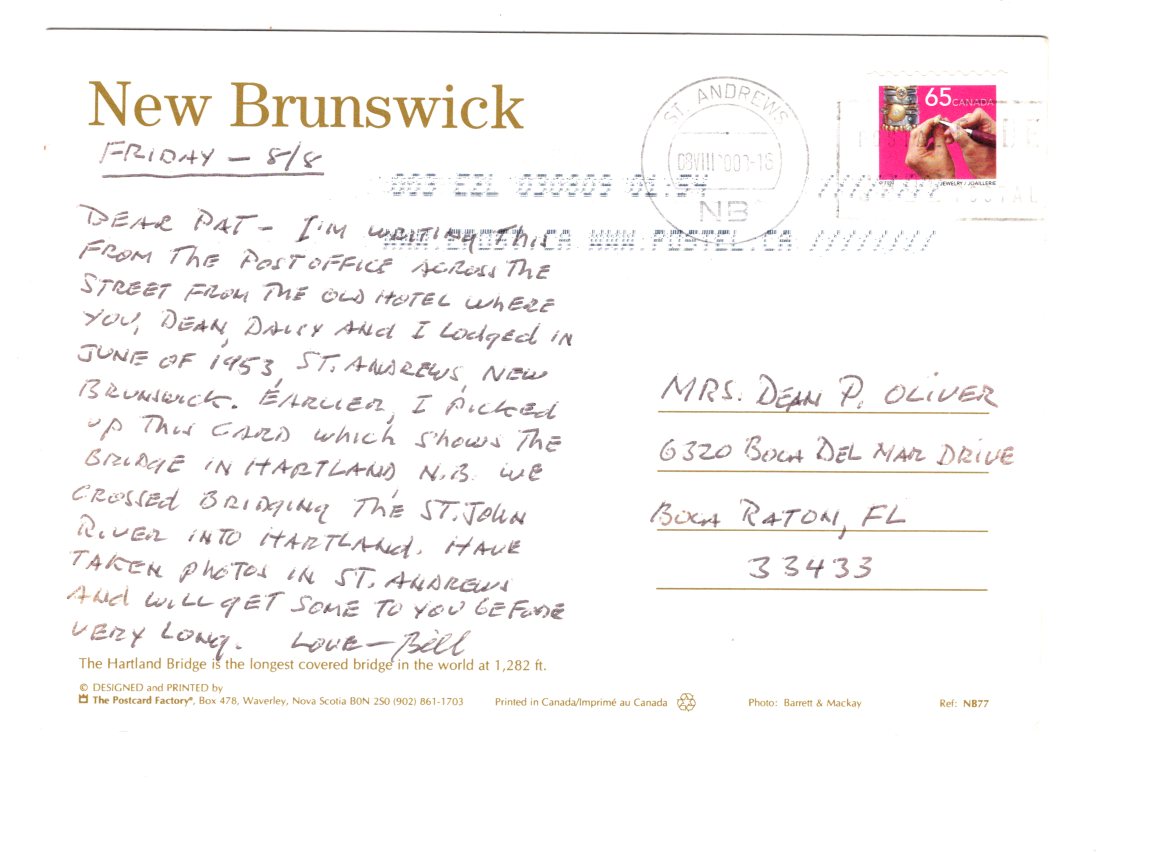 New Brunswick
FRIDAY — 8/8
ST. ANDREWS
NB
65 CANADA
JEWELRY / JOAILLERIE
DEAR PAT - I'M WRITING THIS
FROM THE POST OFFICE ACROSS THE
STREET FROM THE OLD HOTEL WHERE
YOU, DEAN, AND I LODGED IN
JUNE OF 1953, ST. ANDREWS, NEW
BRUNSWICK. EARLIER, I PICKED
UP THIS CARD WHICH SHOWS THE
BRIDGE IN HARTLAND, N.B. WE
CROSSED BRIDGING THE ST. JOHN
RIVER INTO HARTLAND. HAVE
TAKEN PHOTOS IN ST. ANDREWS
AND WILL GET SOME TO YOU BEFORE
VERY LONG. LOVE — Bill
MRS. DEAN P. OLIVER
6320 BOCA DEL MAR DRIVE
BOCA RATON, FL
33433
The Hartland Bridge is the longest covered bridge in the world at 1,282 ft.
© DESIGNED and PRINTED by
The Postcard Factory®, Box 478, Waverley, Nova Scotia B0N 2S0 (902) 861-1703
Printed in Canada/Imprimé au Canada
Photo: Barrett & Mackay
Ref: NB77